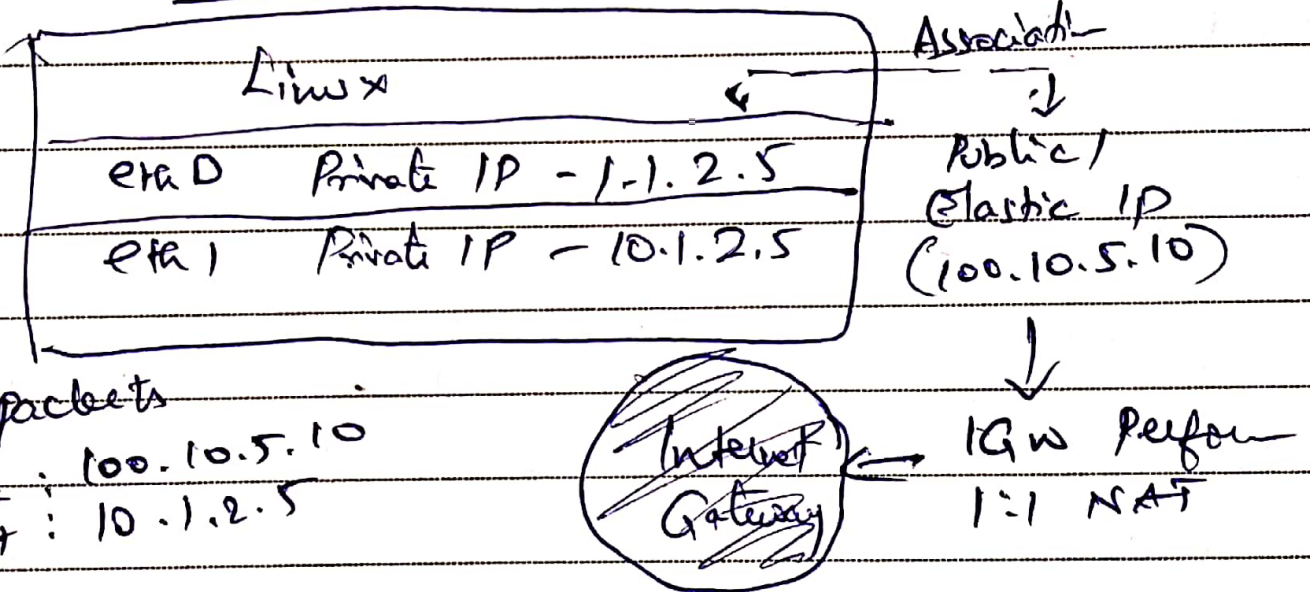 Association
Linux
eth 0 Private IP - 1.1.2.5
eth 1 Private IP - 10.1.2.5
Public /
Elastic IP
(100.10.5.10)
packets
: 100.10.5.10
: 10.1.2.5
Internet
Gateway
IGW Perform
1:1 NAT